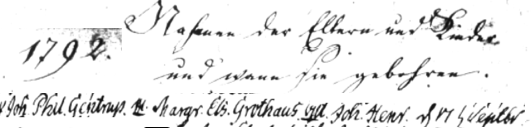 1792.
Nahmen der Eltern und Kinder
und wann sie gebohren.
Joh. Phil. Gentrup. u. Margr. Els. Grothaus Joh. Henr. d 17 Septbr